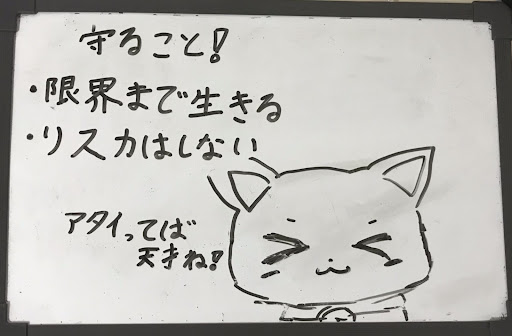 守ること!
・限界まで生きる
・リスカはしない
アタイってば
天才ね!